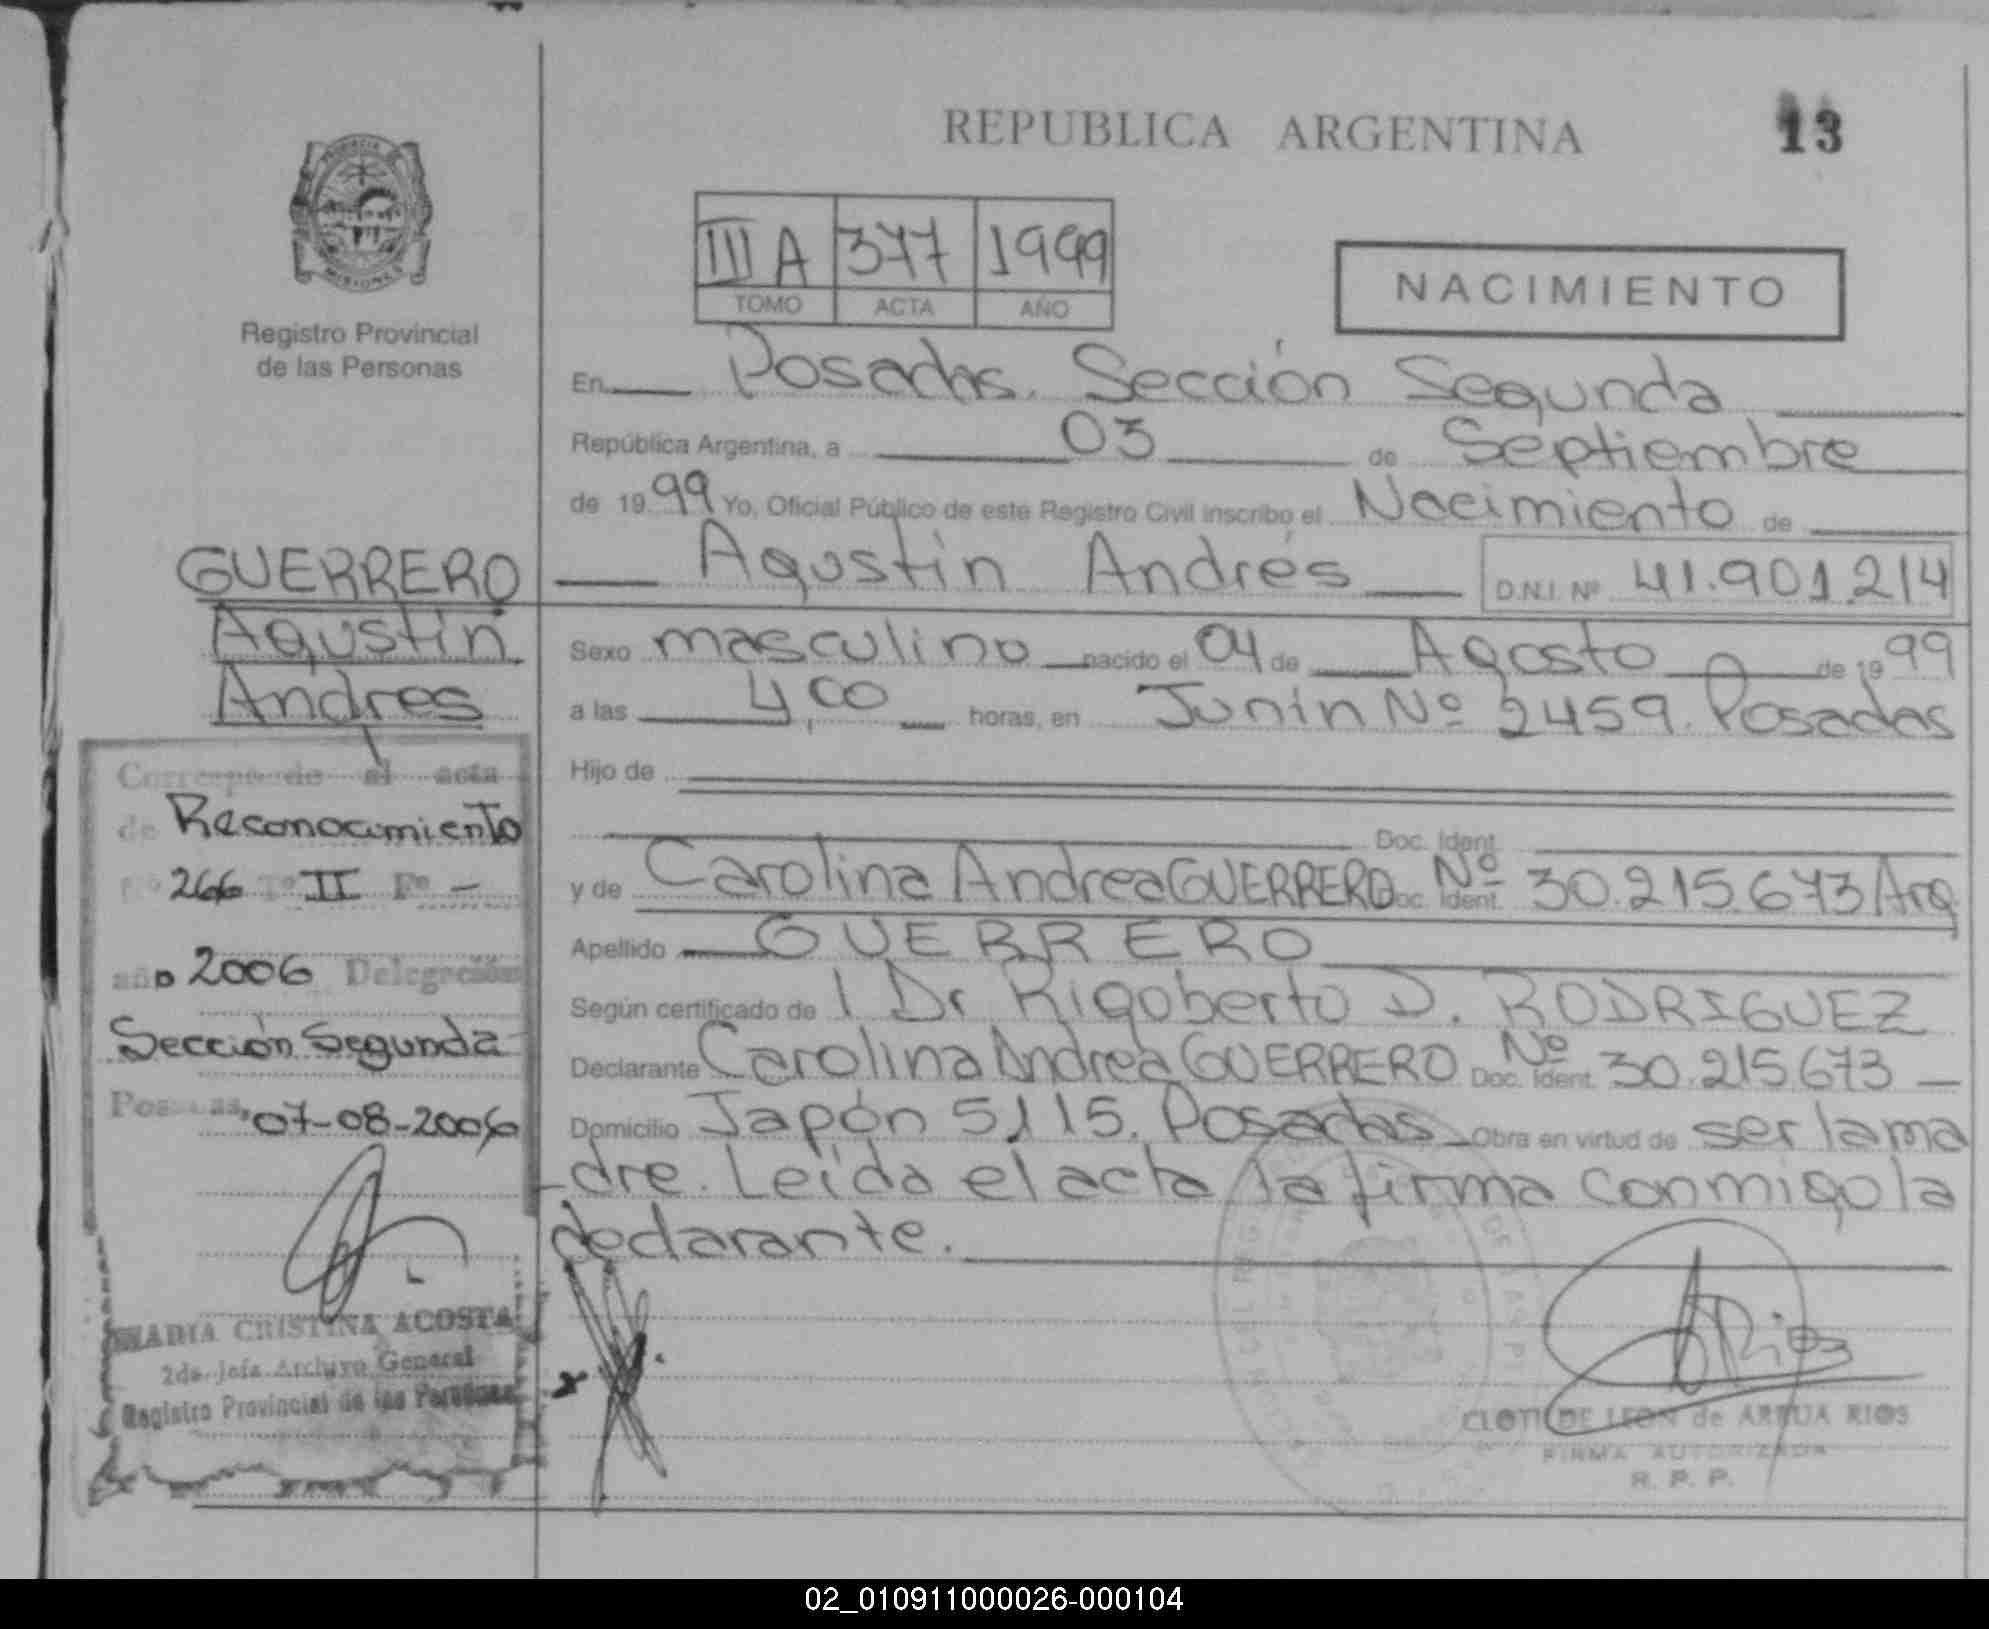 REPUBLICA ARGENTINA
13
Registro Provincial
de las Personas
III A 377 1999
TOMO ACTA AÑO
NACIMIENTO
En Posadas. Sección Segunda
República Argentina, a 03 de Septiembre
de 1999 Yo, Oficial Público de este Registro Civil inscribo el Nacimiento de
Agustin Andrés D.N.I. Nº 41.901.214
Sexo masculino nacido el 04 de Agosto de 1999
a las 4,00 horas, en Junin Nº 2459. Posadas
Hijo de
Doc. Ident.
y de Carolina Andrea GUERRERO Doc. Ident. Nº 30.215.673 Arg
Apellido GUERRERO
Según certificado de 1 Dr Rigoberto D. RODRIGUEZ
Declarante Carolina Andrea GUERRERO Doc. Ident. Nº 30.215.673
Domicilio Japón 5115. Posadas Obra en virtud de ser la ma
dre. Leída el acta la firma conmigo la
declarante.
Rios
CLOTILDE LEON de ARRUA RIOS
FIRMA AUTORIZADA
R. P. P.
GUERRERO
Agustin
Andres
Corresponde al acta
de Reconocimiento
Nº 266 Tº II Fº -
año 2006 Delegación
Sección Segunda
Posadas, 07-08-2006
MARIA CRISTINA ACOSTA
2da. Jefa Archivo General
Registro Provincial de las Personas
02_010911000026-000104